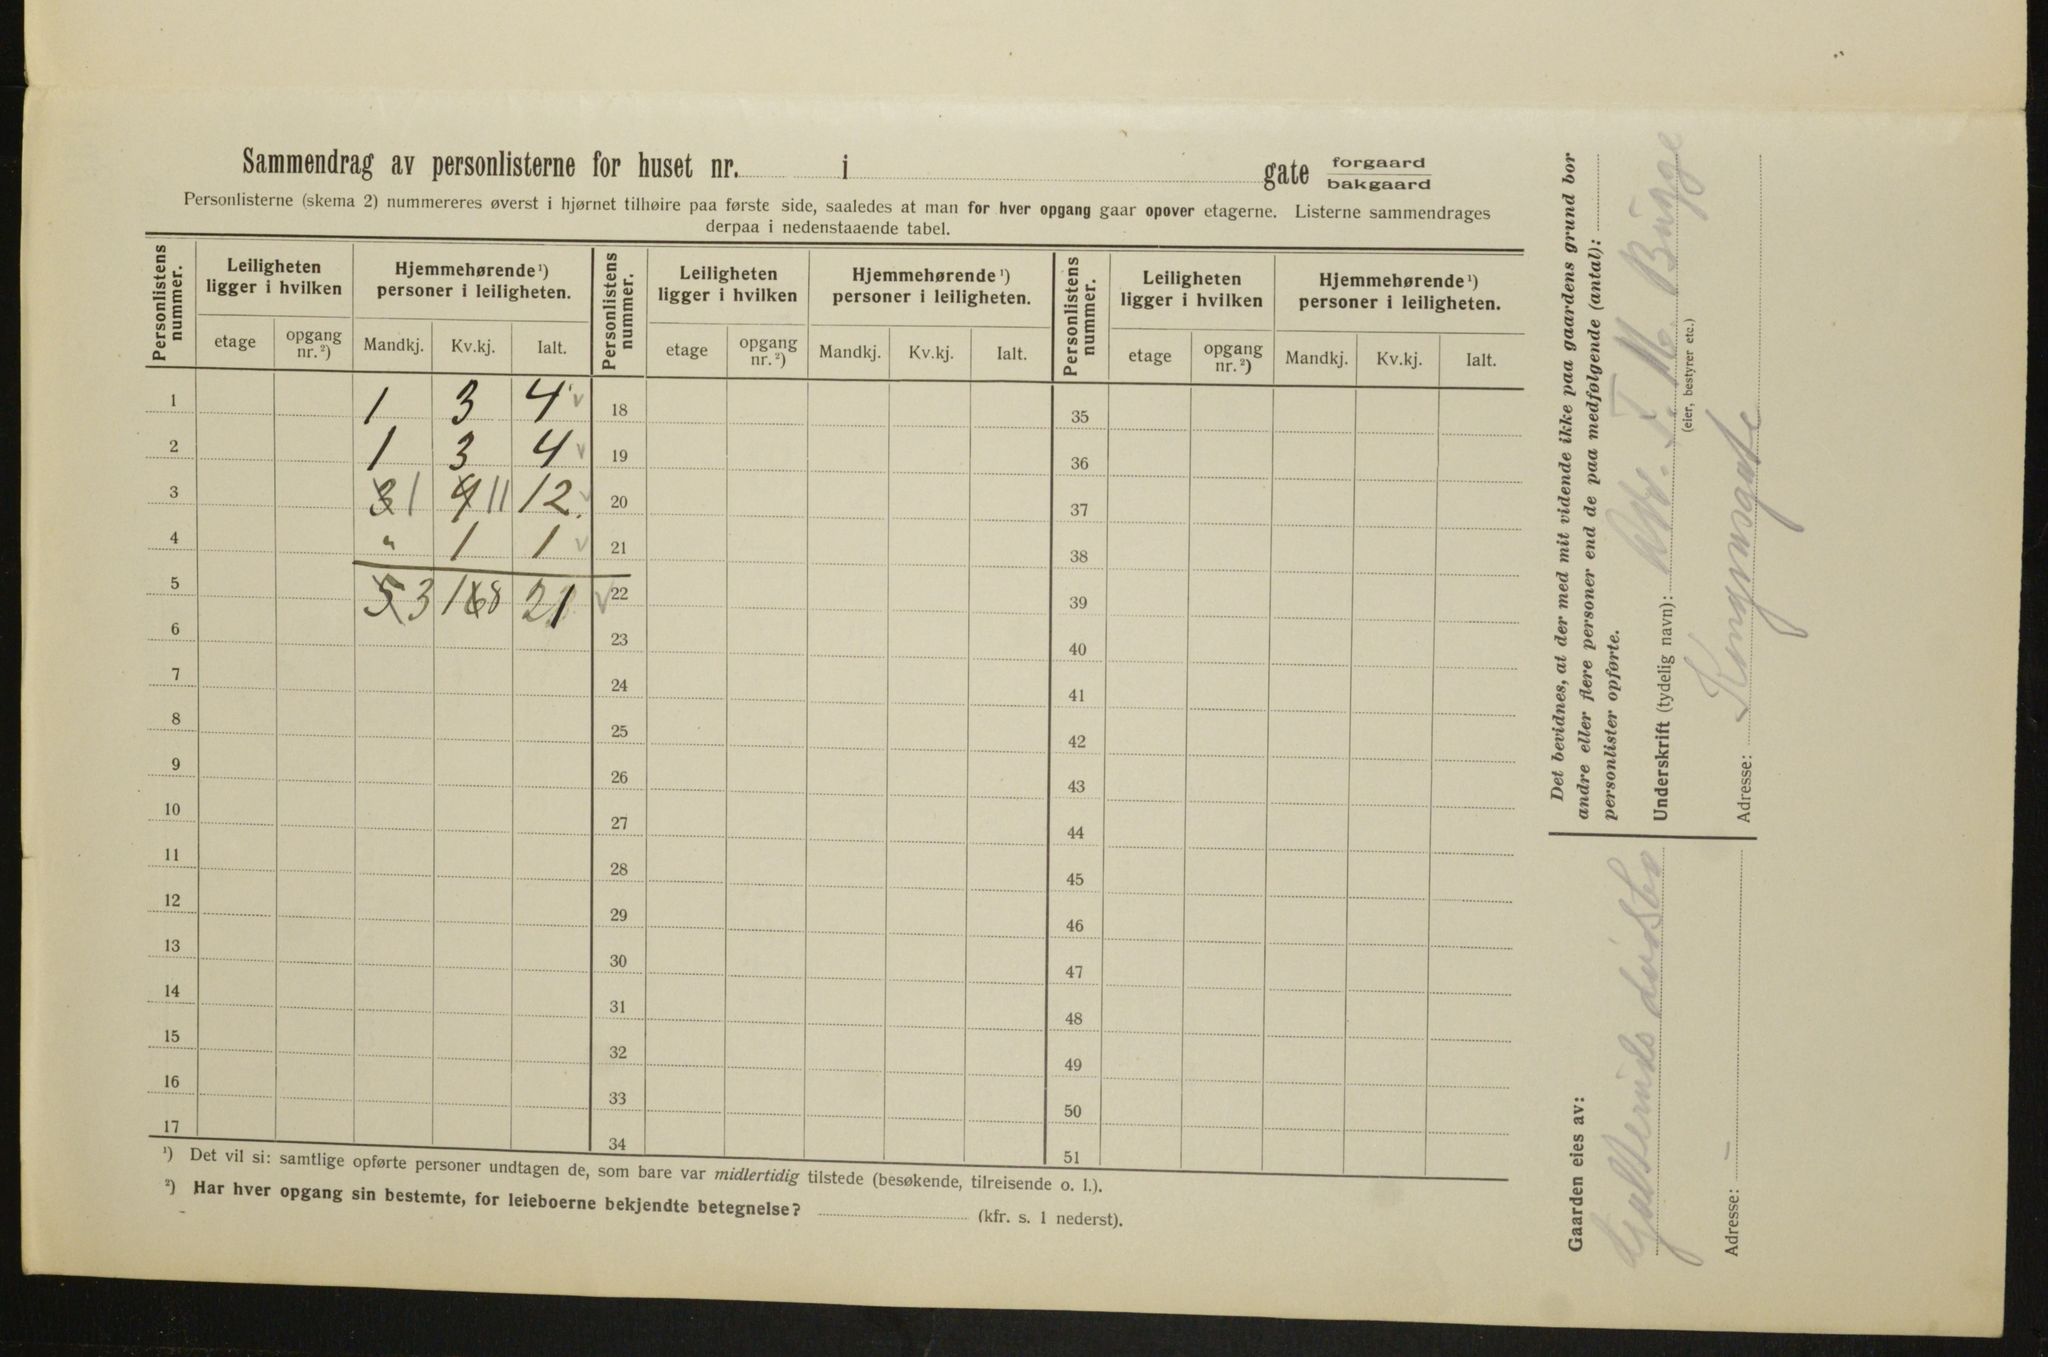 Sammendrag av personlisterne for huset nr. i gate forgaard bakgaard
Personlisterne (skema 2) nummereres øverst i hjørnet tilhøire paa første side, saaledes at man for hver opgang gaar opover etagerne. Listerne sammendrages
derpaa i nedenstaaende tabel.
Personlistens nummer. Leiligheten ligger i hvilken Hjemmehørende ¹) personer i leiligheten. Personlistens nummer. Leiligheten ligger i hvilken Hjemmehørende ¹) personer i leiligheten. Personlistens nummer. Leiligheten ligger i hvilken Hjemmehørende ¹) personer i leiligheten.
etage opgang nr. ²) Mandkj. Kv.kj. Ialt. etage opgang nr. ²) Mandkj. Kv.kj. Ialt. etage opgang nr. ²) Mandkj. Kv.kj. Ialt.
1 1 3 4 18 35
2 1 3 4 19 36
3 3 1 9 11 12 20 37
4 " 1 1 21 38
5 5 3 16 8 21 22 39
6 23 40
7 24 41
8 25 42
9 26 43
10 27 44
11 28 45
12 29 46
13 30 47
14 31 48
15 32 49
16 33 50
17 34 51
¹) Det vil si: samtlige opførte personer undtagen de, som bare var midlertidig tilstede (besøkende, tilreisende o. l.).
²) Har hver opgang sin bestemte, for leieboerne bekjendte betegnelse? (kfr. s. 1 nederst).
Det bevidnes, at der med mit vidende ikke paa gaardens grund bor
andre eller flere personer end de paa medfølgende (antal):
personlister opførte.
Underskrift (tydelig navn): F. M. Bugge
(eier, bestyrer etc.)
Adresse: Kongensgate
Gaarden eies av:
Adresse: –